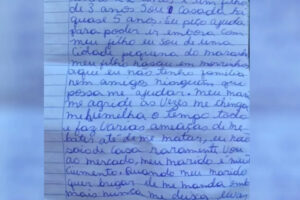 de 5 anos sou casada a
quase 5 anos. Eu peço ajuda
para poder ir embora com
meu filho eu sou de uma
cidade pequena do
meu filho nasceu em
aqui eu não tenho família
nem amigos ninguém que
possa me ajudar. Meu
me agride às vezes me xinga
me humilha o tempo todo
e faz várias ameaças de
bater até de me matar, eu não
saio de casa raramente vou
ao mercado, meu marido é
ciumento. quando meu marido
quer brigar ele me manda embora
mais nunca me deixa